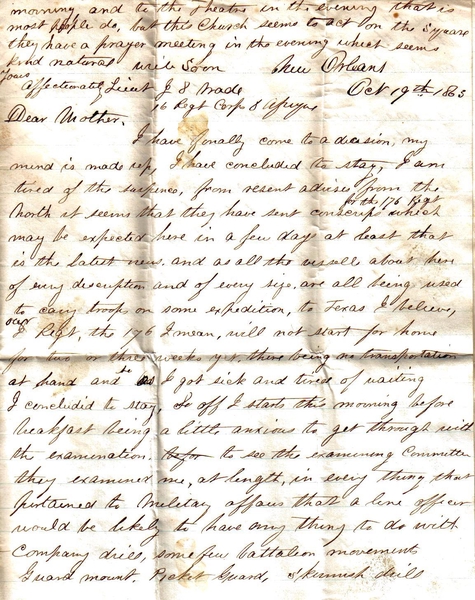 morning and to the Theatre in the evening that is
most people do, but this Church seems to act on the Square
they have a prayer meeting in the evening which seems
kind natural write Soon New Orleans
Yours affectionately Lieut J S Wade Oct 19th 1863
76 Regt Corp d Afrique
Dear Mother.
I have fonally come to a decision, my
mind is made up, I have concluded to stay, I am
tired of the suspence, from resent advises from the
for the 176 Regt
North it seems that they have sent conscrips which
may be expected here in a few days at least that
is the latest news. and as all the vessells about here
of evry description and of evry size, are all being used
to cary troops on some expedition, to Texas I believe,
our Regt, the 176 I mean, will not start for home
for two or three weeks yet, there being no transportation
at hand and so as I got sick and tired of waiting
I concluded to stay, So off I starts this morning before
breakfast being a little anxious to get through with
the examination. befor to see the examining Committee
they examined me, at length, in every thing that
pertained to Military affairs that a line officer
would be likely to have any thing to do with
Company drill, some few battalion movements
Guard mount, Picket Guard, Skirmish drill